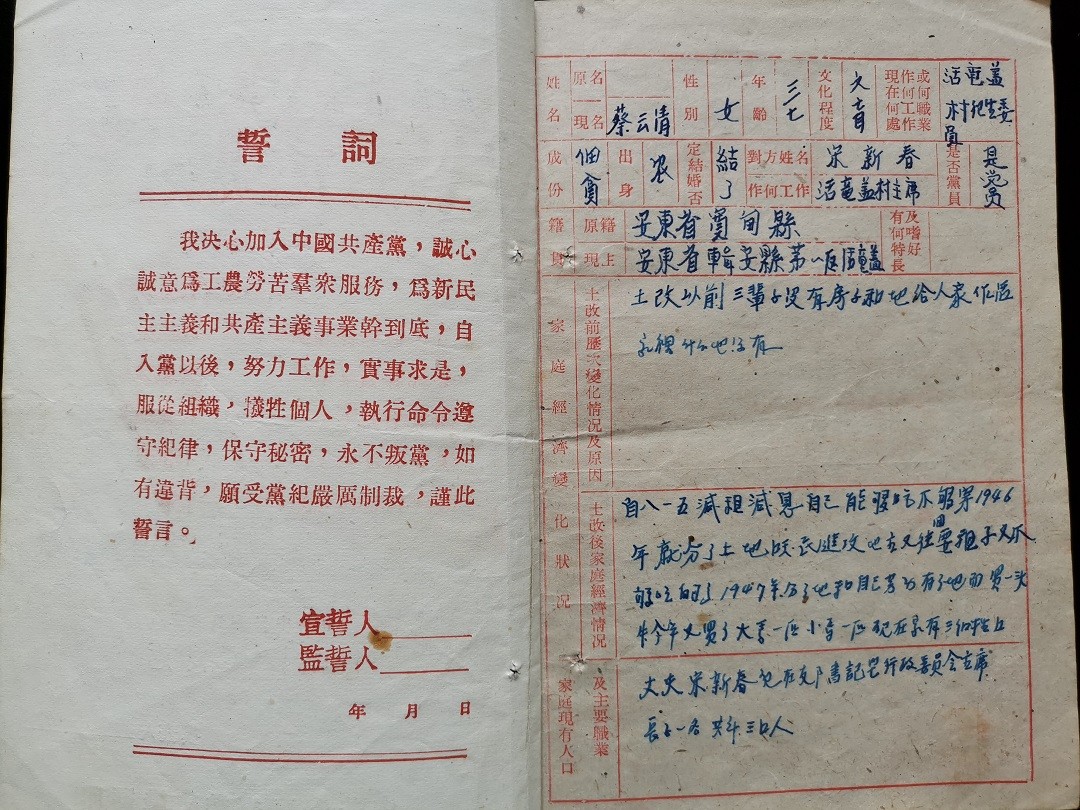 誓詞
我決心加入中國共產黨，誠心
誠意爲工農勞苦羣衆服務，爲新民
主主義和共產主義事業幹到底，自
入黨以後，努力工作，實事求是，
服從組織，犧牲個人，執行命令遵
守紀律，保守秘密，永不叛黨，如
有違背，願受黨紀嚴厲制裁，謹此
誓言。
宣誓人
監誓人
年 月 日
姓名 原名 現名 蔡云清
性別 女
年齡 三七
文化程度 文盲
現在何處作何工作或何職業 活竜盖村 委員
成份 佃貧
出身 农
定結婚否 結了
對方姓名 宋新春
作何工作 活竜盖村主席
是否黨員 是党员
籍貫 原籍 安東省寬甸縣
現主 安東省輯安縣第一区活竜盖
有何特長及嗜好
家庭經濟變化狀況
土改前歷次變化情况及原因
土改以前三輩子没有房子和地给人家作活
家裡什么也没有
土改後家庭經濟情况
自八一五減租減息自己能够吃不够穿1946
年 分了土地 進攻地主又往回要租子又不
够吃的了1947年分了地和自己 有了地 買一头
牛今年又買了大 一匹小 一匹現在
家庭現有人口及主要職業
丈夫宋新春 書記 行政委員会主席
長子一名共計三口人